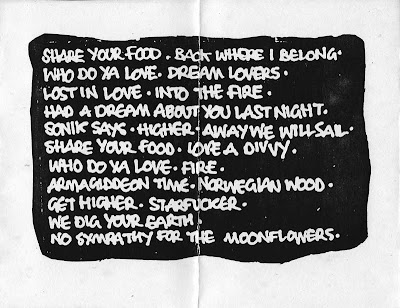 SHARE YOUR FOOD · BACK WHERE I BELONG ·
WHO DO YA LOVE · DREAM LOVERS ·
LOST IN LOVE · INTO THE FIRE ·
HAD A DREAM ABOUT YOU LAST NIGHT ·
SONIK SAYS · HIGHER · AWAY WE WILL SAIL ·
SHARE YOUR FOOD · LOVE A DIVVY ·
WHO DO YA LOVE · FIRE ·
ARMAGIDDEON TIME · NORWEGIAN WOOD ·
GET HIGHER · STARFUCKER ·
WE DIG YOUR EARTH
NO SYMPATHY FOR THE MOONFLOWERS ·